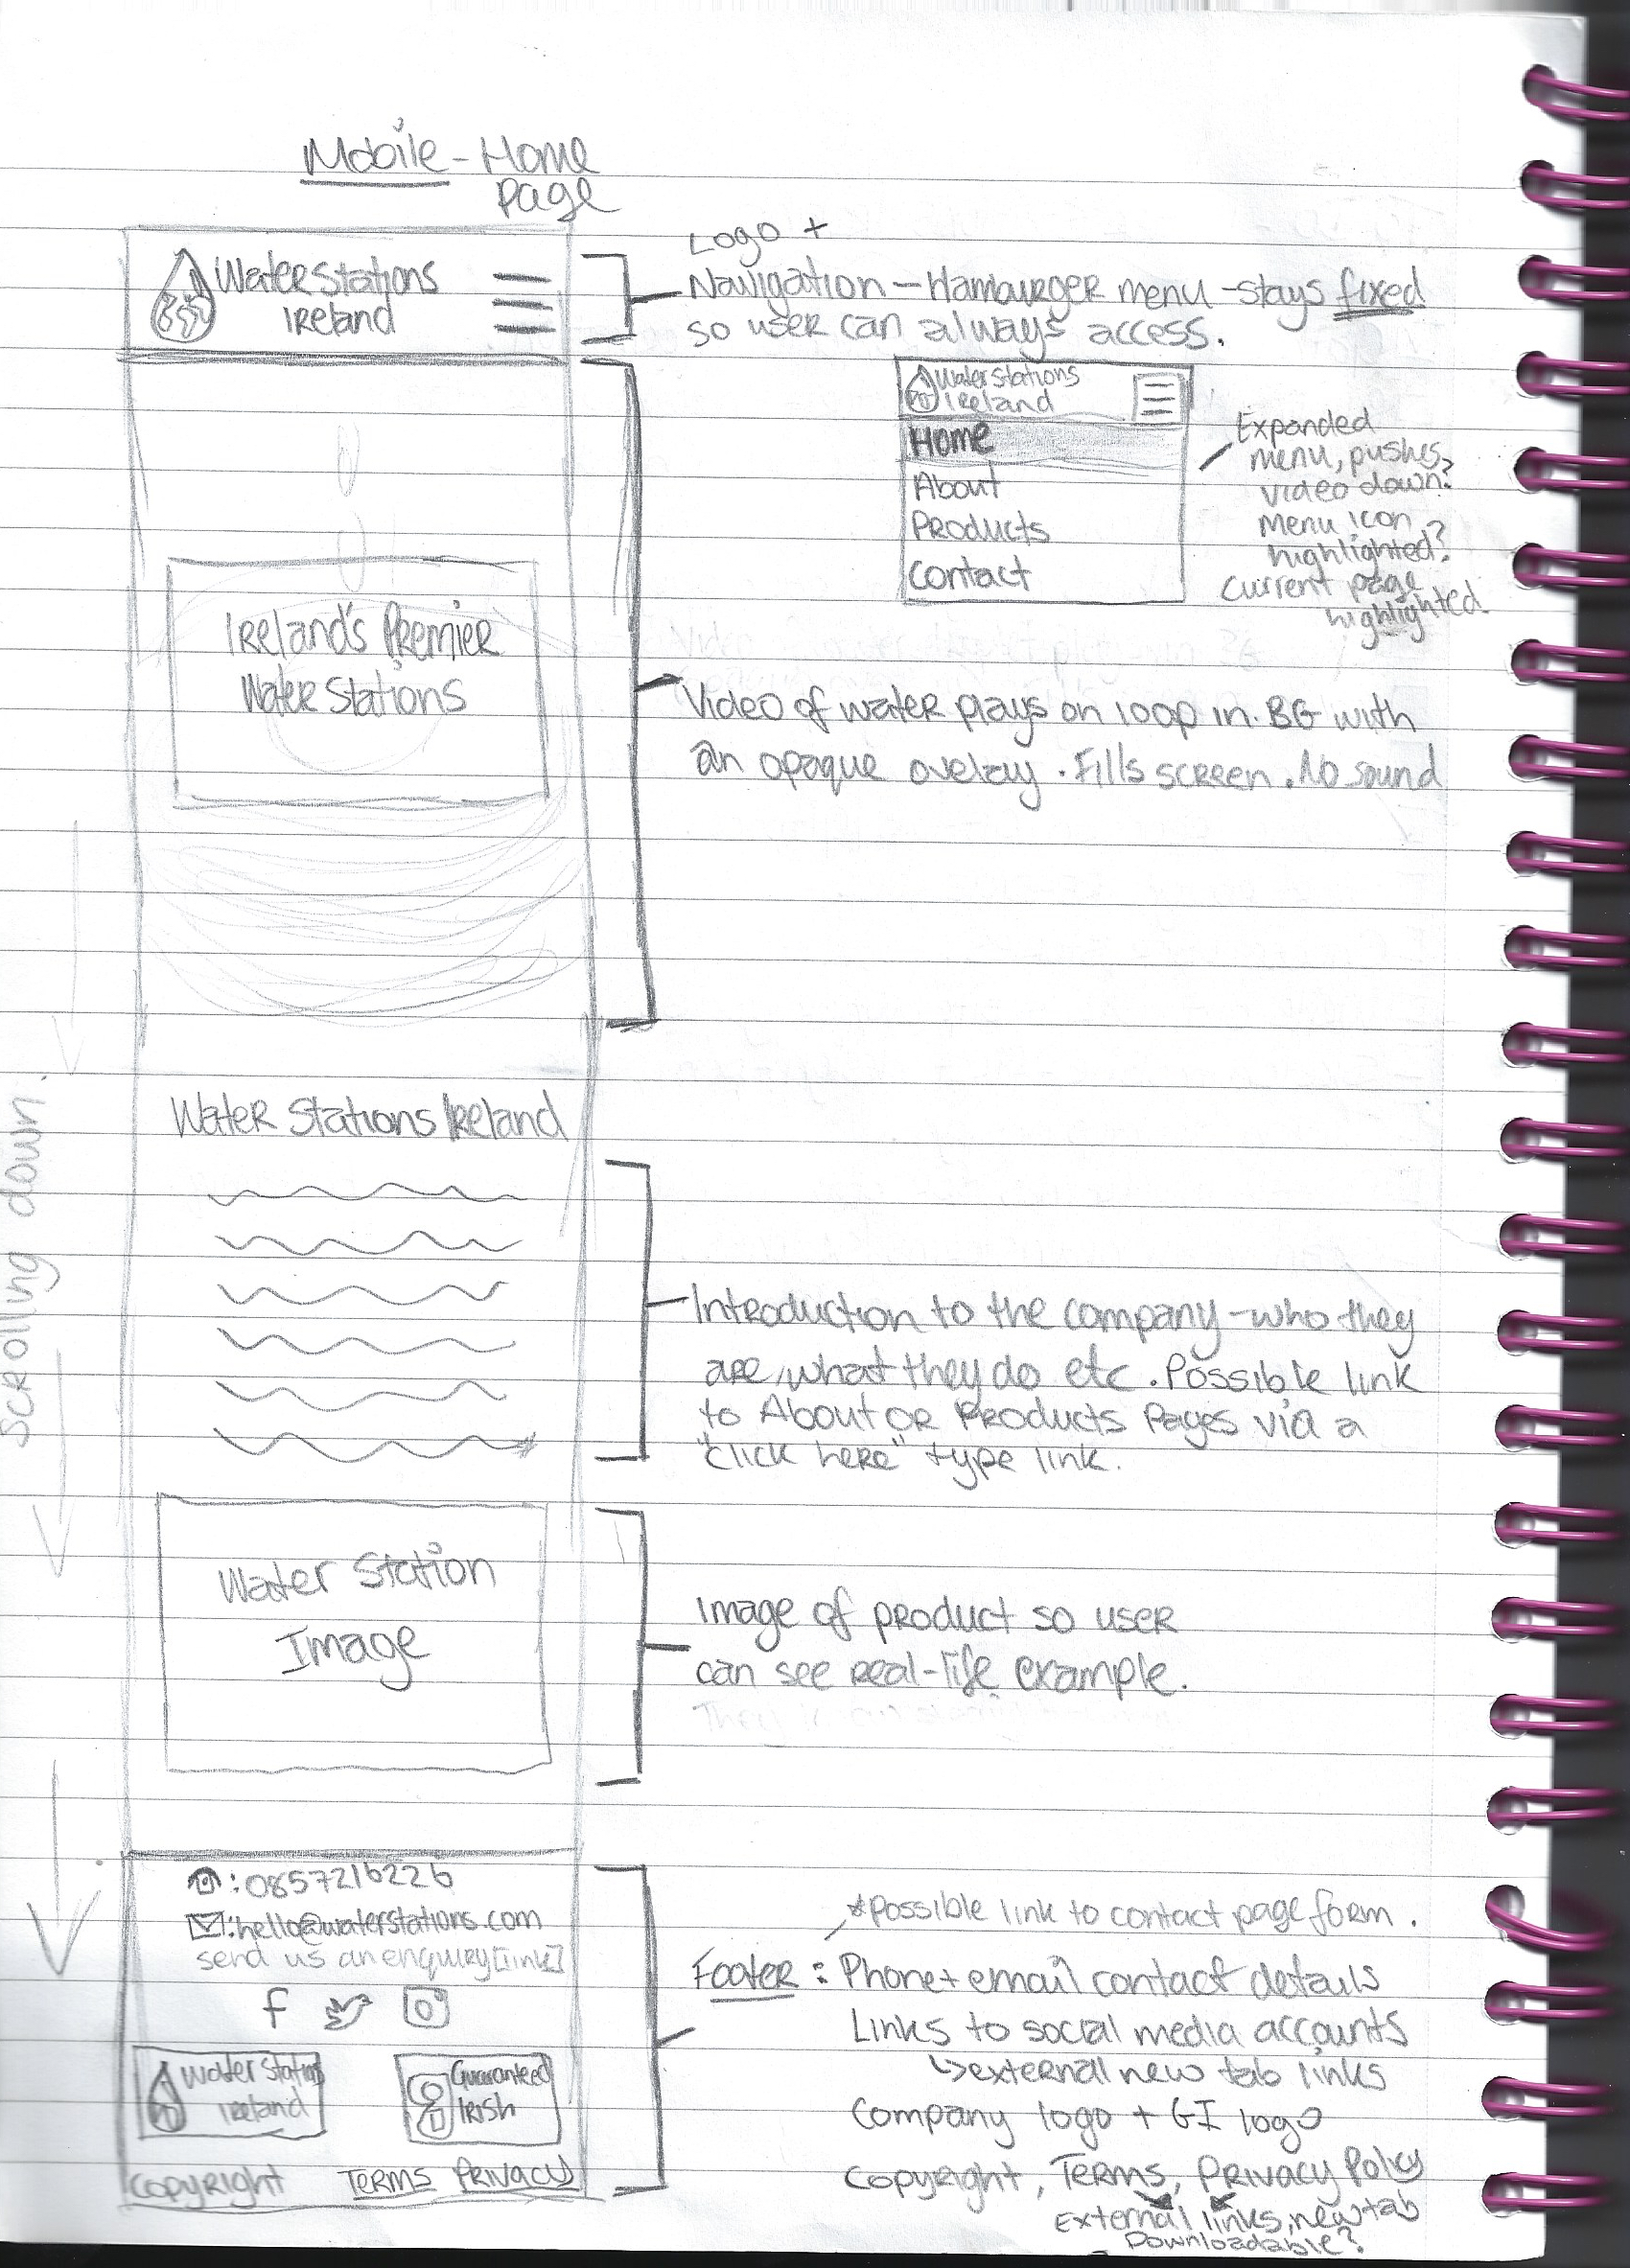 Mobile - Home
Page
Water Stations
Ireland
Logo +
Navigation - Hamburger menu - stays fixed
so user can always access.
Water Stations
Ireland
Home
About
Products
Contact
Expanded
menu, pushes
video down?
Menu icon
highlighted?
Current page
highlighted.
Ireland's Premier
Water Stations
Video of water plays on loop in BG with
an opaque overlay. Fills screen. No sound
Scrolling down.
Water Stations Ireland
Introduction to the company - who they
are, what they do etc. Possible link
to About or Products Pages via a
"click here" type link.
Water Station
Image
Image of product so user
can see real-life example.
☎: 0857216226
✉: hello@waterstations.com
send us an enquiry [link]
f
Water Stations
Ireland
Guaranteed
Irish
Copyright Terms Privacy
*Possible link to contact page form.
Footer: Phone + email contact details
Links to social media accounts
↳ external new tab links
Company logo + GI logo
Copyright, Terms, Privacy Policy
External links, new tab
Downloadable?